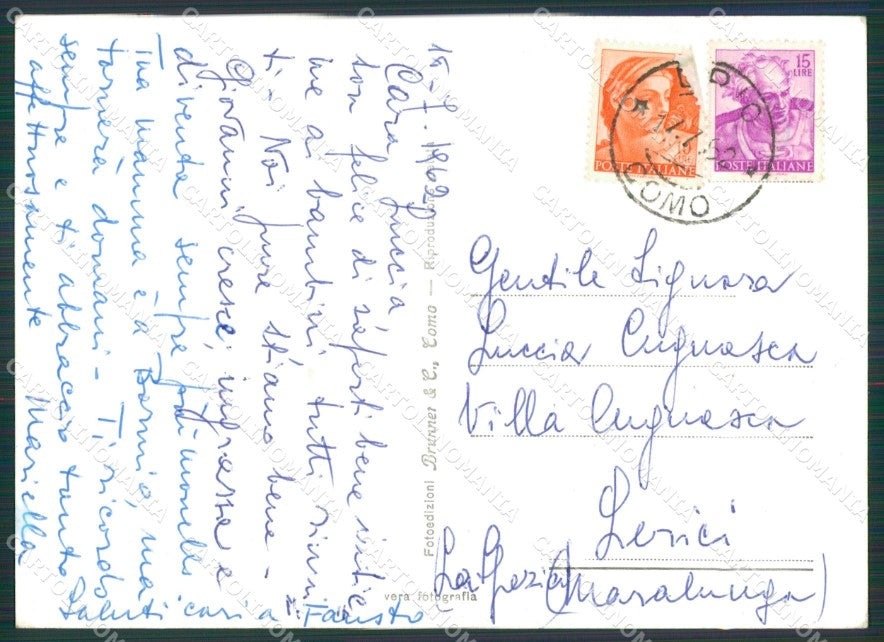 15-7-1962
Cara Luccia
son felice di saperti bene insie
me ai bambini tutti. Siamo
ti - Noi pure stiamo bene -
Giovanni cresce, ingrassa e
diventa sempre più monello.
Tua mamma è a Bormio, ma
tornerà domani - Ti ricordo
sempre e ti abbraccio tanto
affettuosamente Mariella
Saluti cari a
Fausto
15
LIRE
POSTE ITALIANE
POSTE ITALIANE
17.7.62
COMO
Gentile Signora
Luccia Cugnasca
Villa Cugnasca
Lerici
(Maralunga)
La Spezia
Fotoedizioni Brunner & C., Como — Riproduzione
vera fotografia
CARTOLINOMANIA